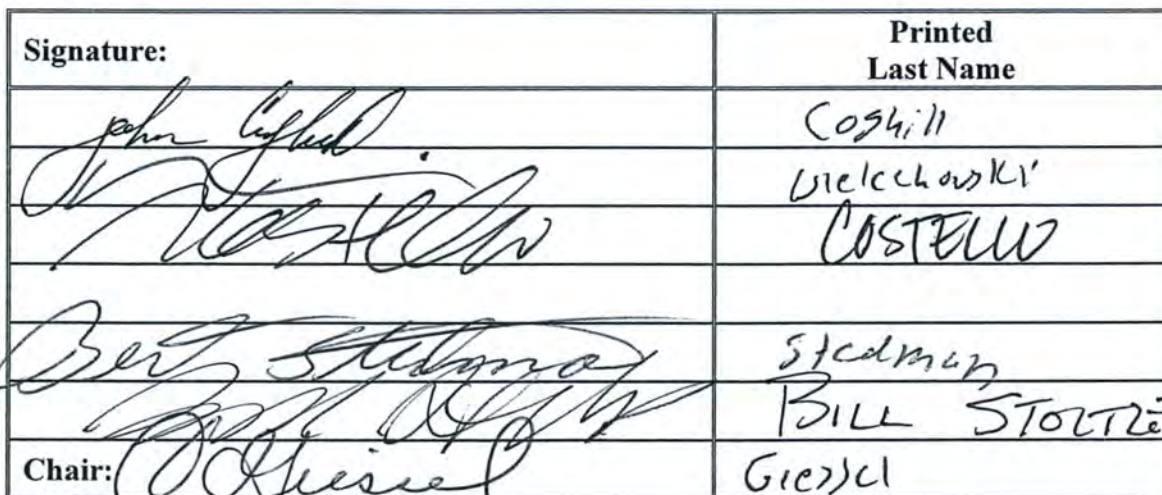 Signature: Printed
Last Name
John Coghill Coghill
Wielechowski
Costello COSTELLO
Bert Stedman Stedman
BILL STOLTZE
Chair: C Giessel Giessel